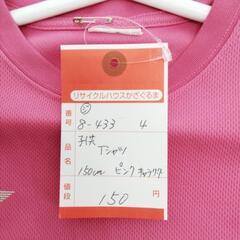 リサイクルハウスかざぐるま
番号 8-433 4
品名 子供
Tシャツ
150cm ピンク キャラクタ
値段 150円